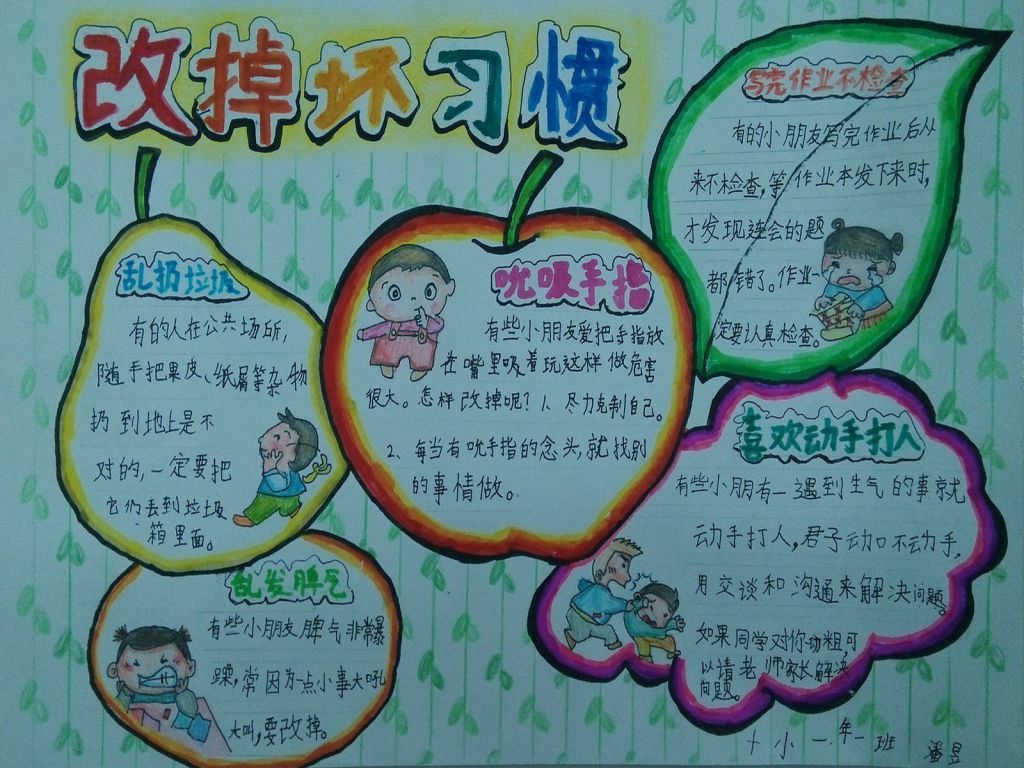 改掉坏习惯
乱扔垃圾
有的人在公共场所,
随手把果皮、纸屑等杂物
扔到地上是不
对的,一定要把
它们丢到垃圾
箱里面。
吮吸手指
有些小朋友爱把手指放
在嘴里吸着玩这样做危害
很大。怎样改掉呢?1、尽力克制自己。
2、每当有吮手指的念头,就找别
的事情做。
写完作业不检查
有的小朋友写完作业后从
来不检查,等作业本发下来时,
才发现连会的题
都错了。作业一
定要认真检查。
乱发脾气
有些小朋友脾气非常暴
躁,常因为一点小事大吼
大叫,要改掉。
喜欢动手打人
有些小朋有一遇到生气的事就
动手打人,君子动口不动手,
用交谈和沟通来解决问题。
如果同学对你动粗可
以请老师家长解决
问题。
十小一年一班
潘昱